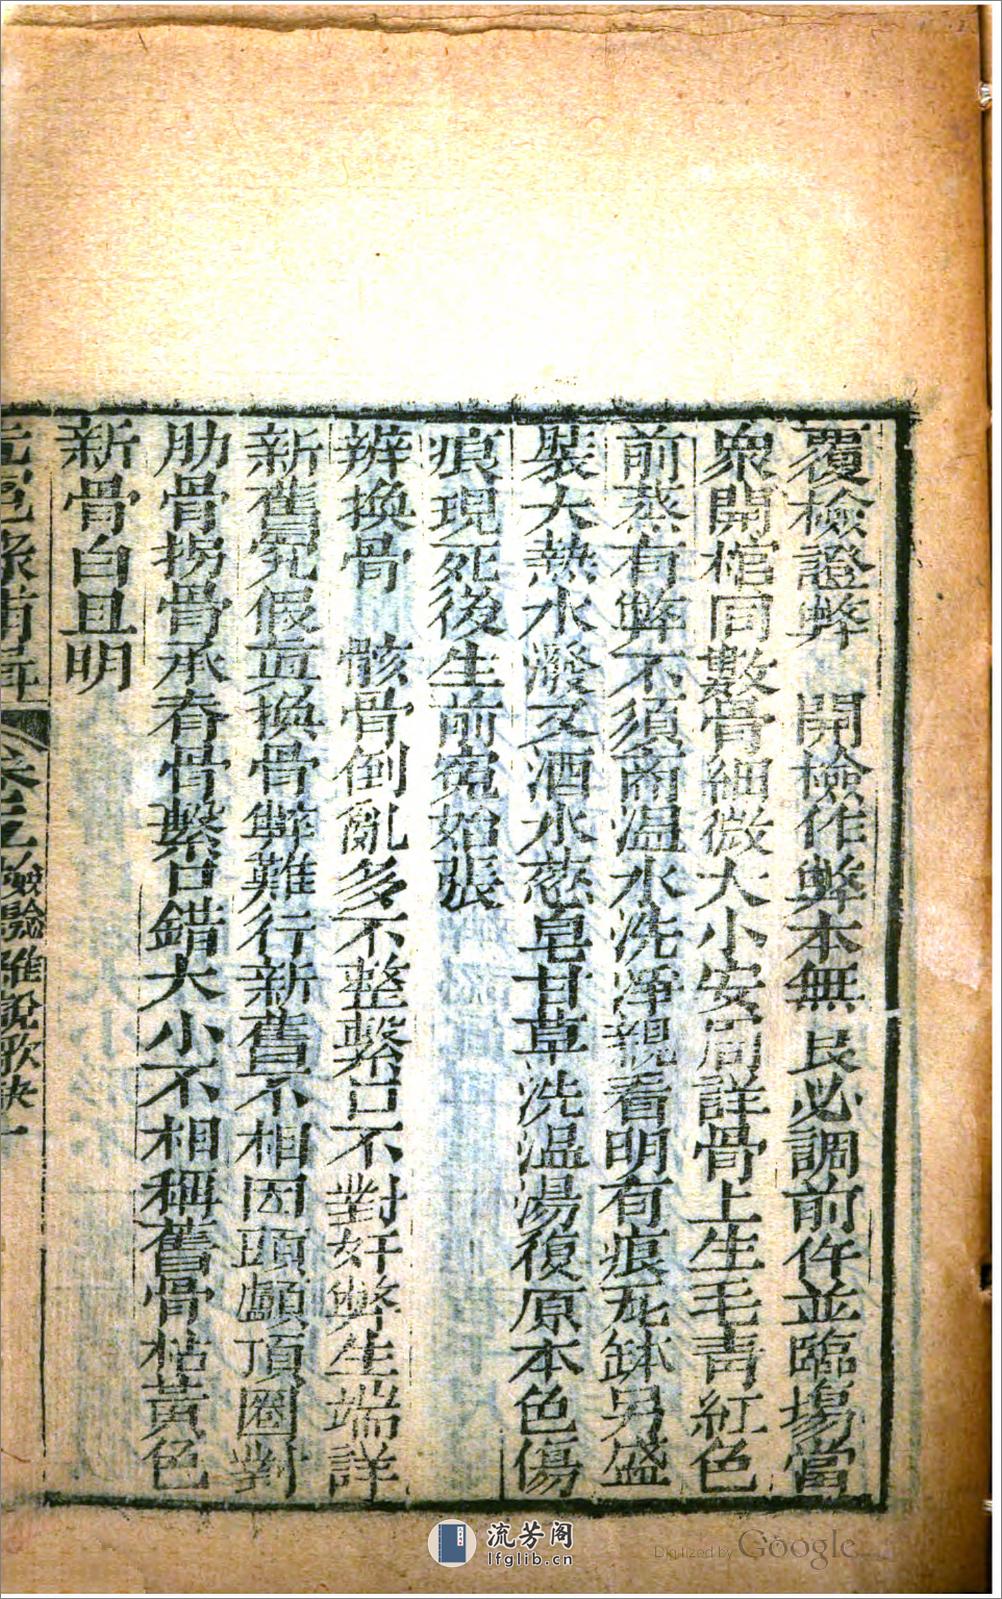 覆檢證弊　開檢作弊本無良必調前仵並臨塲當
衆開棺同數骨細微大小安周詳骨上生毛青紅色
前蒸有弊不須商温水洗淨親看明有痕瓦鉢另盛
裝大熱水潑又酒水葱皂甘草洗温湯復原本色傷
痕現死後生前寃始張
辨換骨　骸骨倒亂多不整繫口不對奸弊生端詳
新舊究假眞換骨弊難行新舊不相因頭顱頂圈對
肋骨拐骨承脊骨繫口錯大小不相稱舊骨枯黃色
新骨白且明
卷之 檢驗雜說歌訣一
流芳阁
lfglib.cn
Digitized by Google